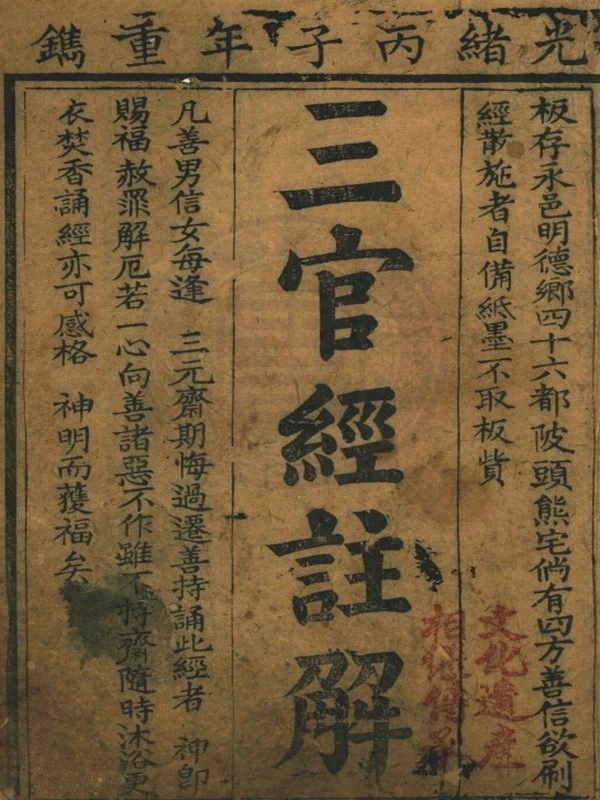 光緒丙子年重鐫
板存永邑明德鄉四十六都陂頭熊宅倘有四方善信欲刷
經散施者自備紙墨不取板貲
三官經註解
凡善男信女每逢 三元齋期悔過遷善持誦此經者 神卽
賜福赦罪解厄若一心向善諸惡不作雖不持齋隨時沐浴更
衣焚香誦經亦可感格 神明而獲福矣
文化遺產